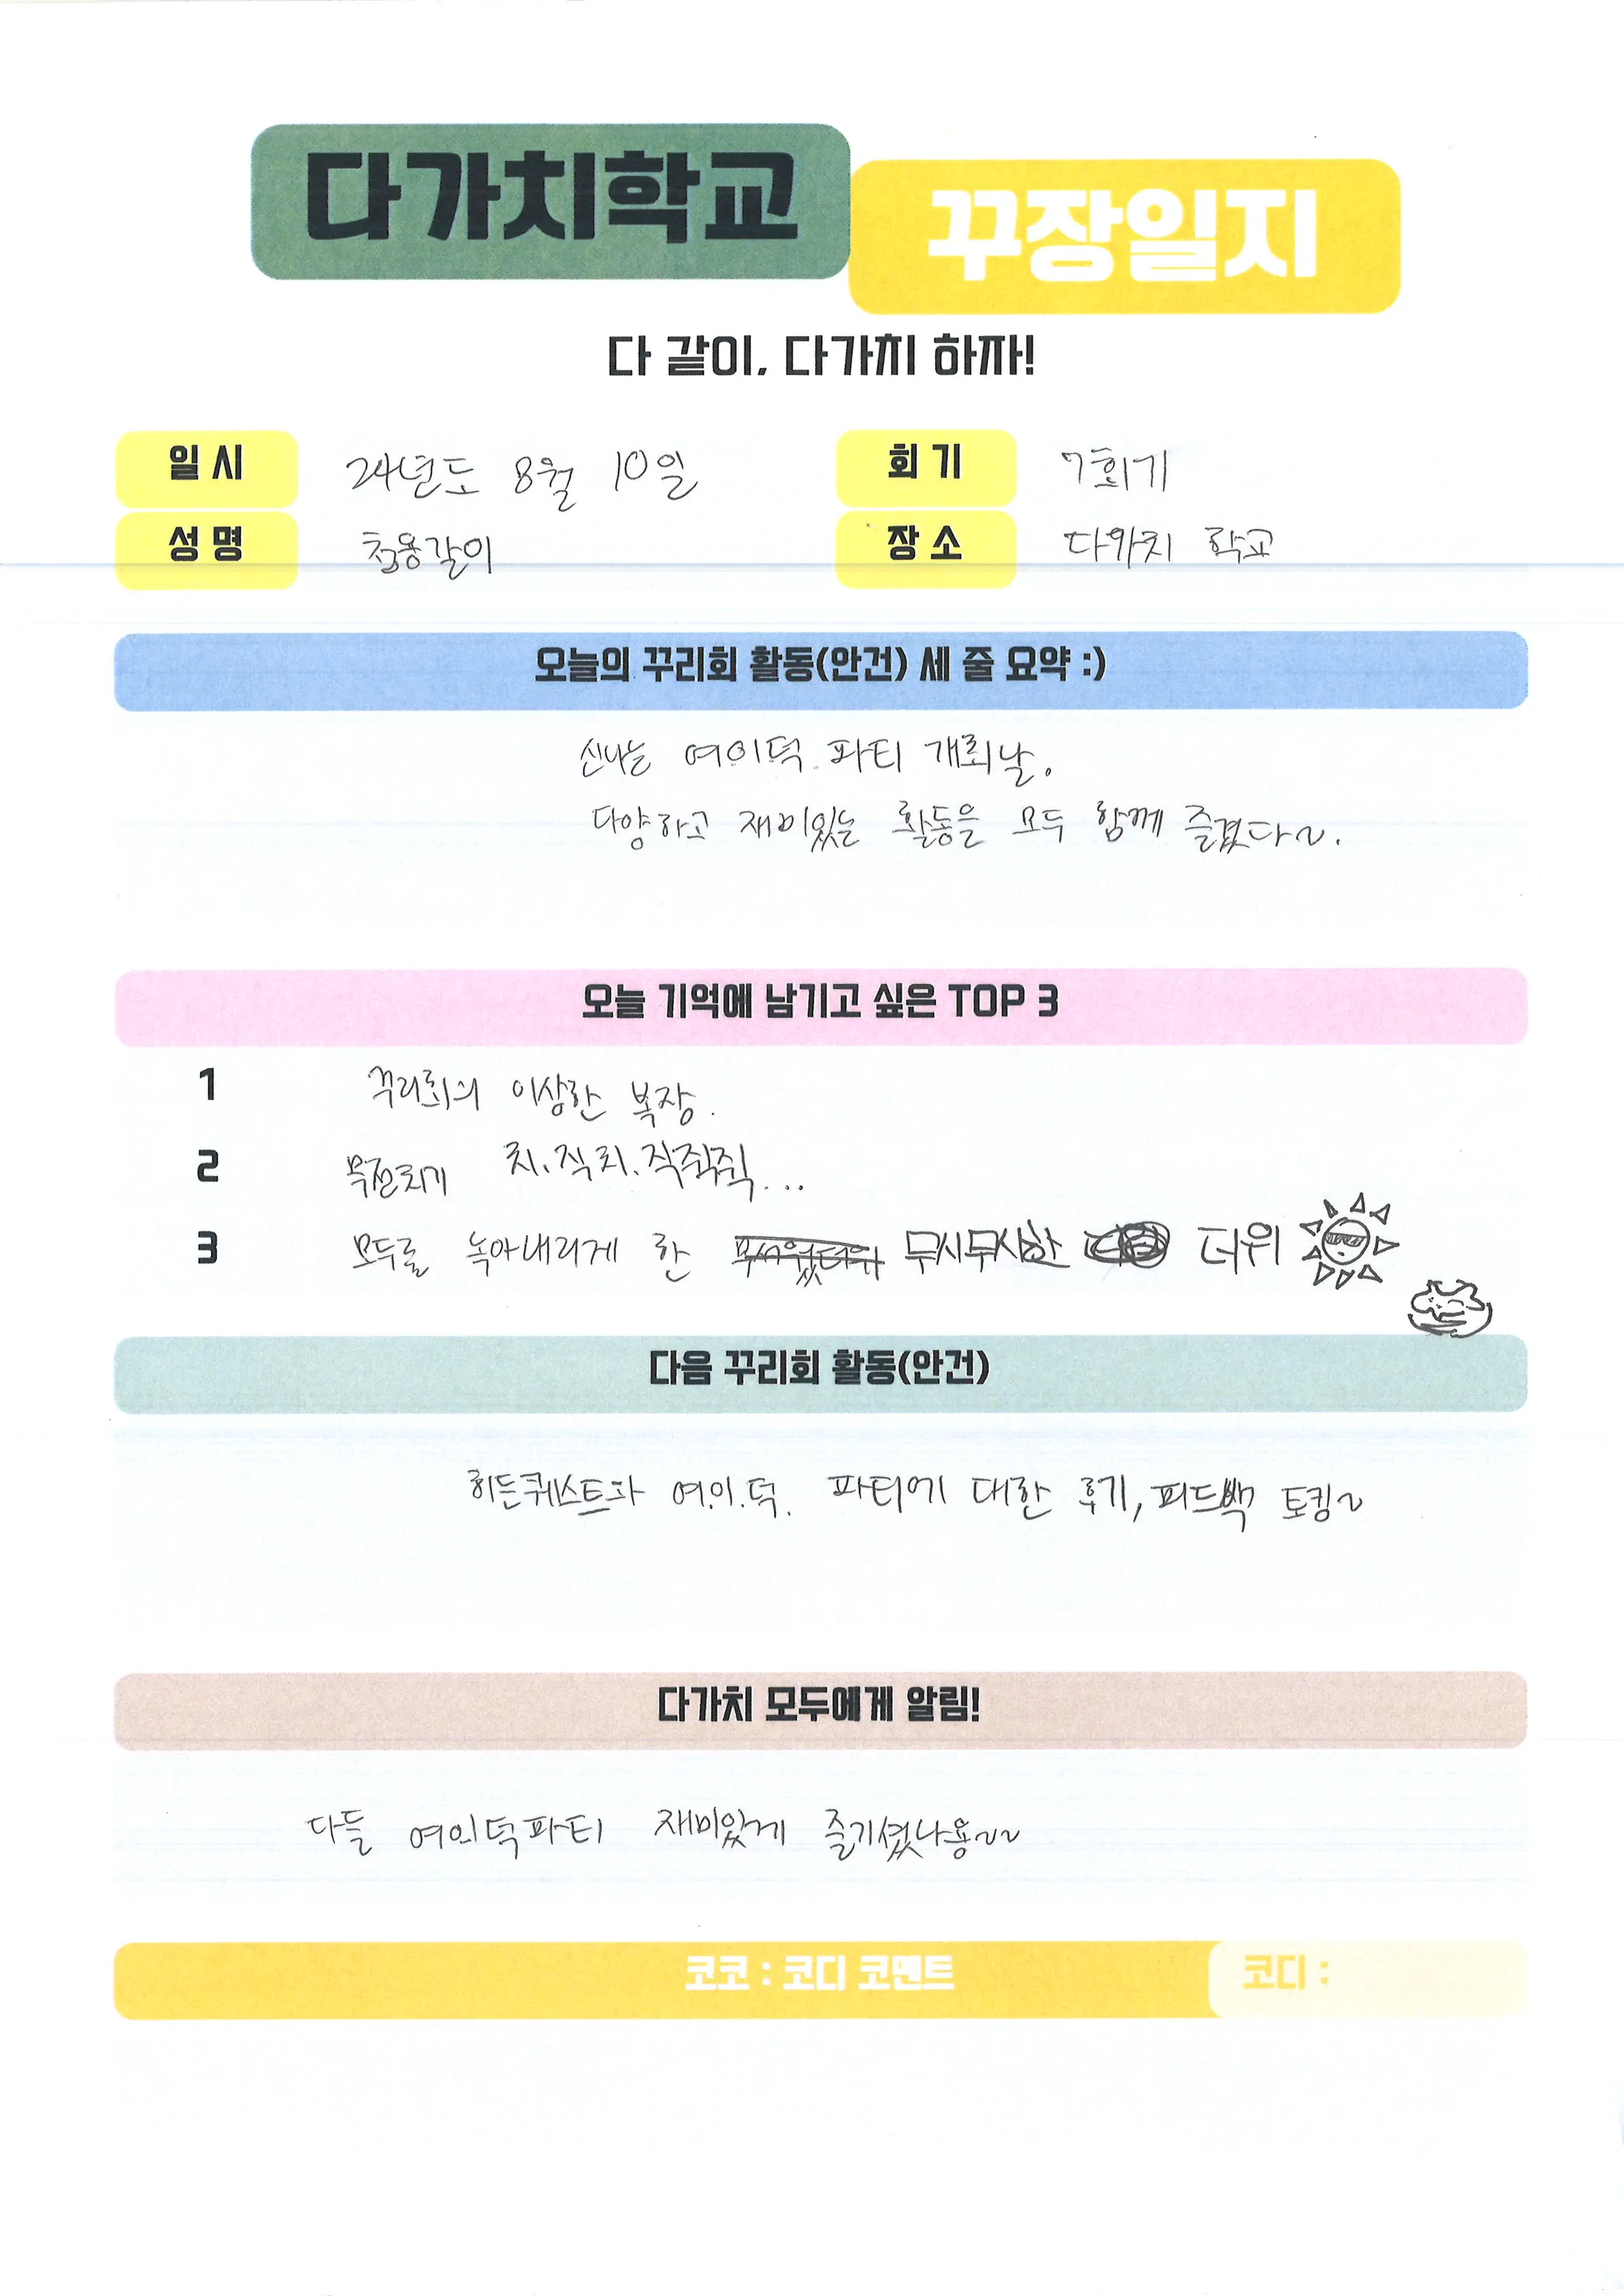 다가치학교
꾸장일지
다 같이, 다가치 하자!
일시 24년도 8월 10일 회기 7회기
성명 청용갈이 장소 다가치 학교
오늘의 꾸리회 활동(안건) 세 줄 요약 :)
신나는 여.이.덕. 파티 개최날.
다양하고 재미있는 활동을 모두 함께 즐겼다~.
오늘 기억에 남기고 싶은 TOP 3
1 꾸리회의 이상한 복장.
2 치.직 치.직
3 모두를 녹아내리게 한 무시무시한 더위
다음 꾸리회 활동(안건)
히든퀘스트과 여.이.덕. 파티에 대한 후기, 피드백 토킹~
다가치 모두에게 알림!
다들 여이덕파티 재미있게 즐기셨나용~~
코코 : 코디 코멘트 코디 :